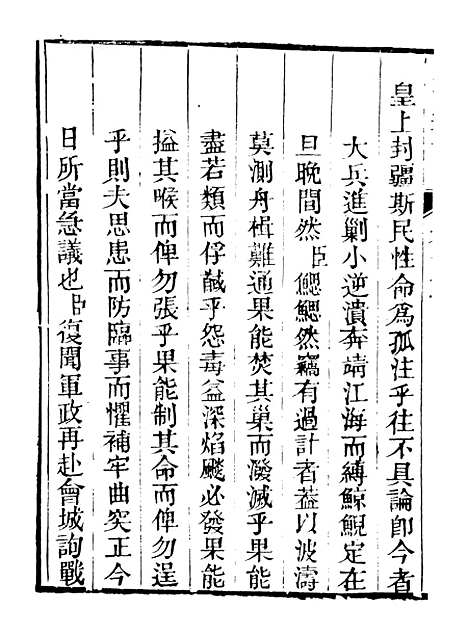 皇上封疆斯民性命爲孤注乎往不具論卽今者
大兵進剿小逆潰奔靖江海而縛鯨鯢定在
旦晚間然臣鰓鰓然竊有過計者葢以波濤
莫測舟楫難通果能焚其巢而潑滅乎果能
盡若類而俘馘乎怨毒益深焰飈必發果能
搤其喉而俾勿張乎果能制其命而俾勿逞
乎則夫思患而防臨事而懼補牢曲突正今
日所當急議也臣復聞軍政再赴會城詢戰